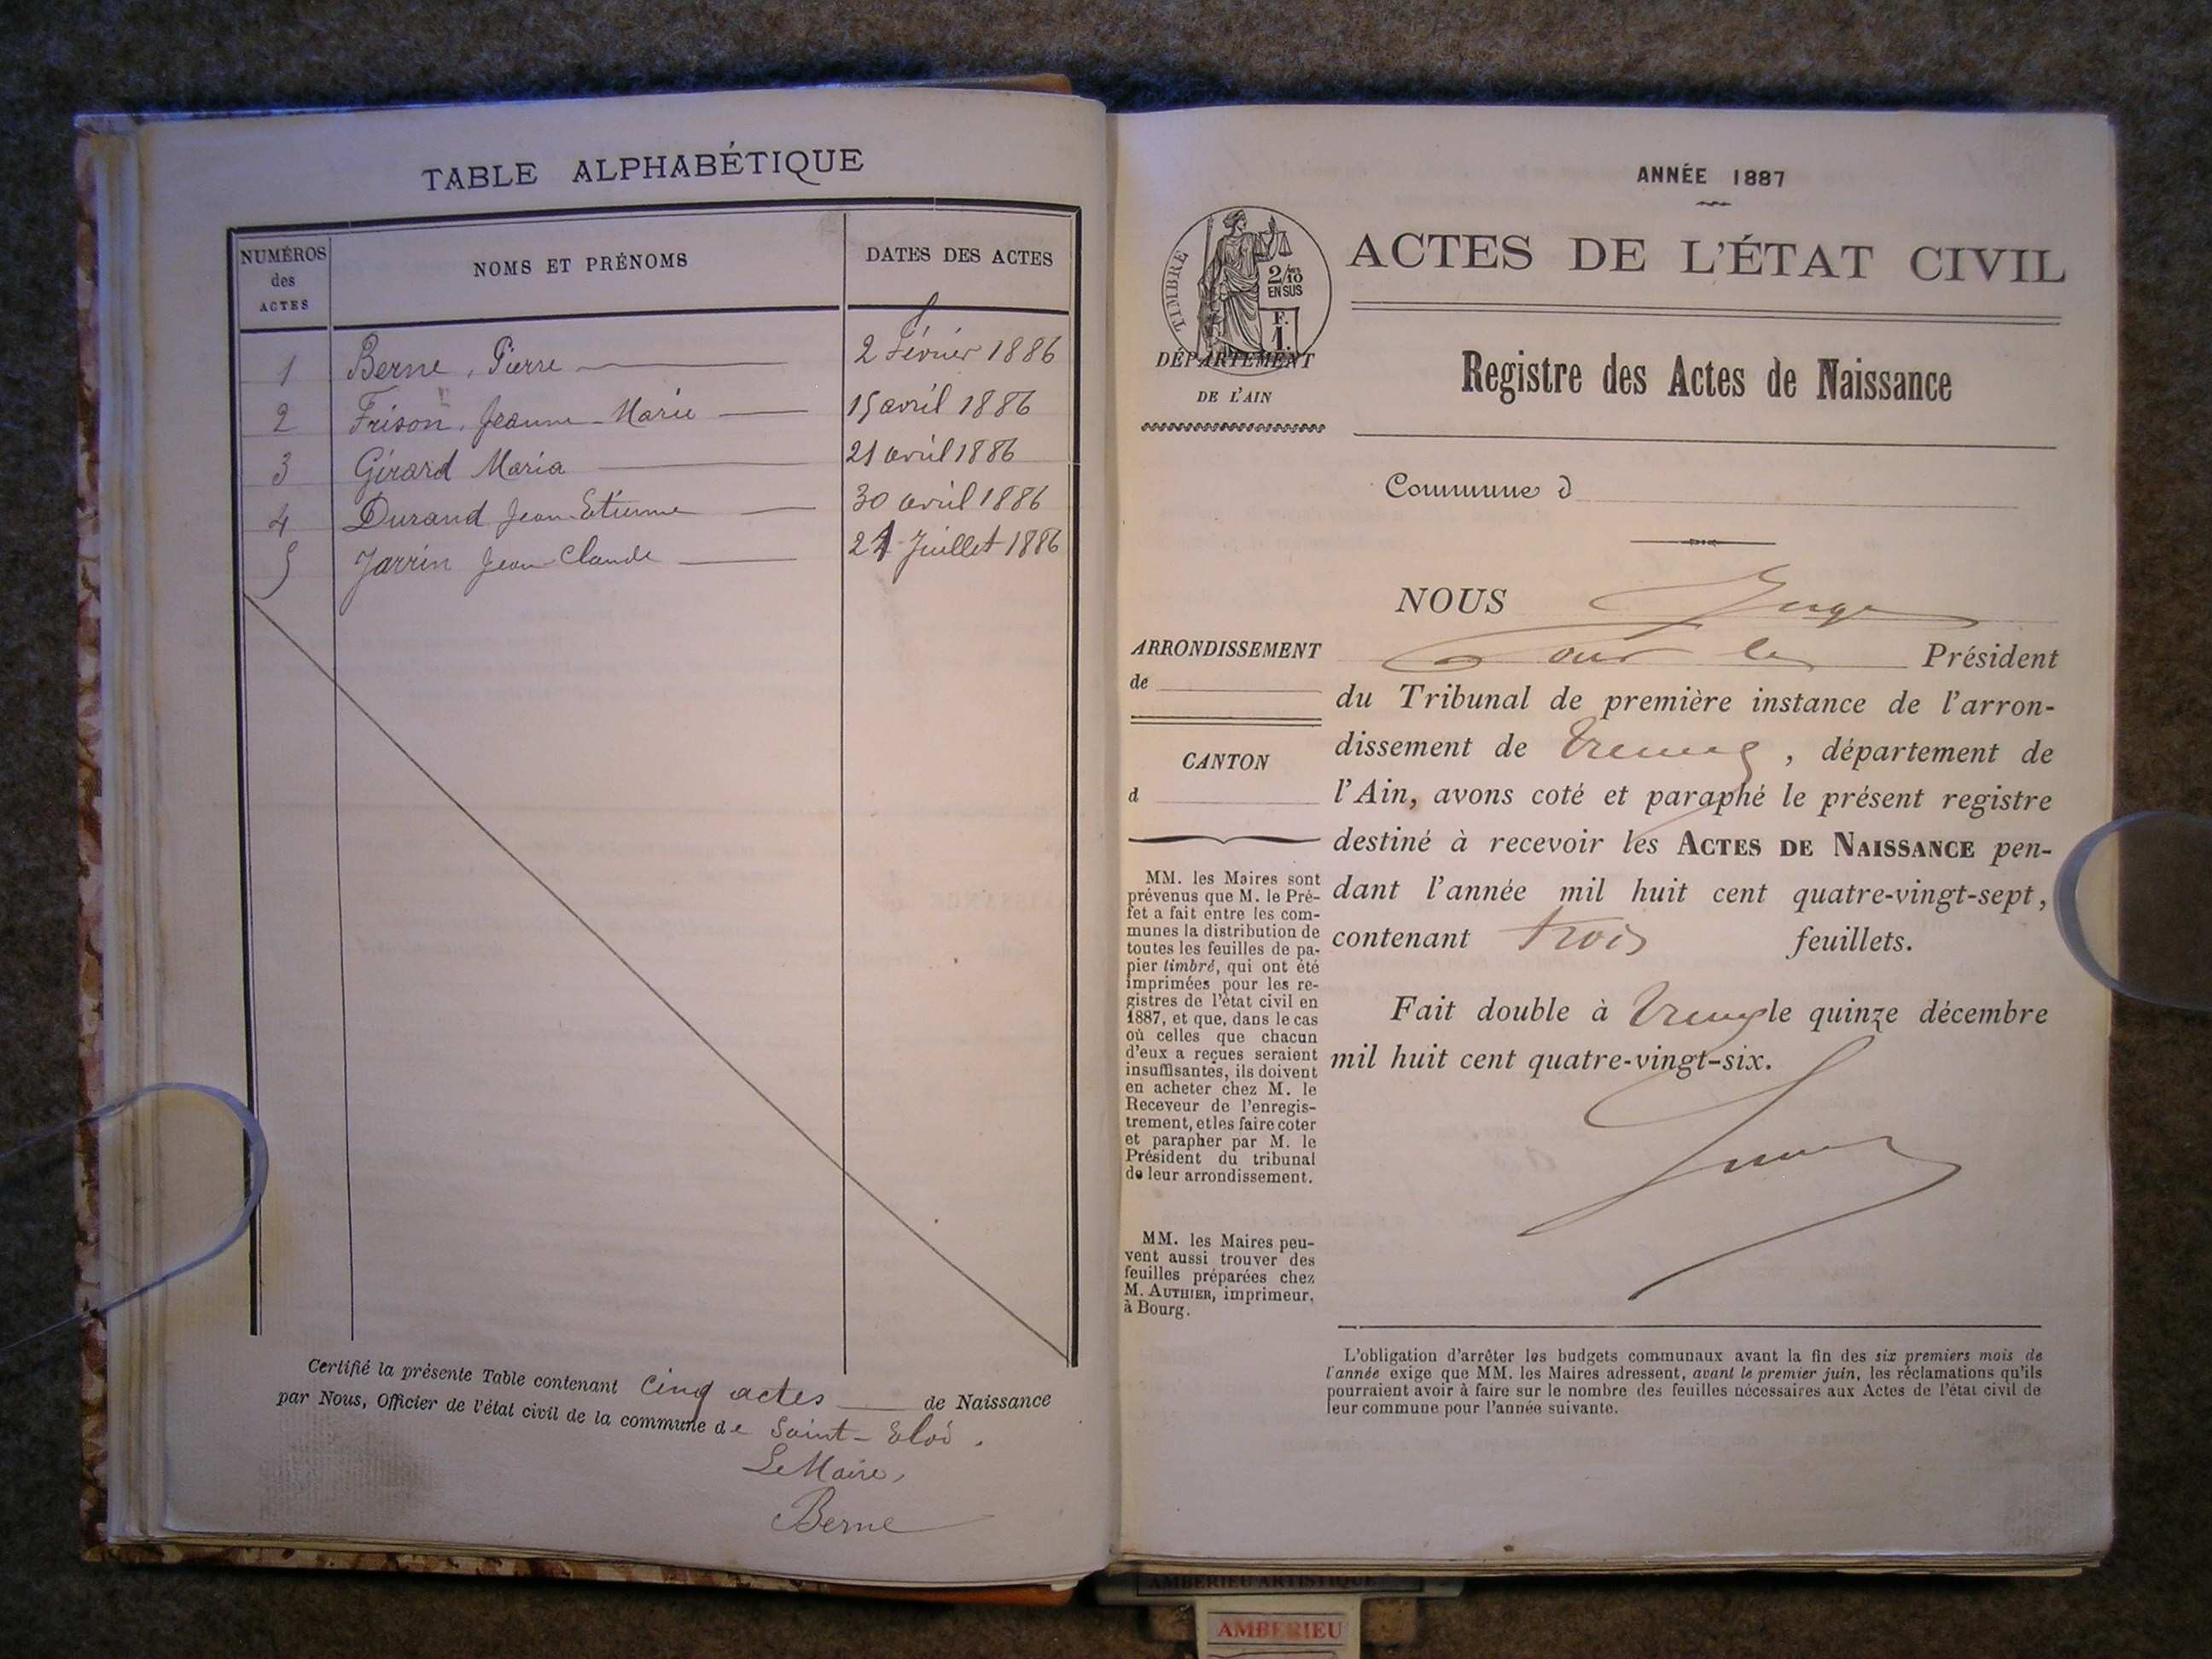 TABLE ALPHABÉTIQUE
NUMÉROS des ACTES NOMS ET PRÉNOMS DATES DES ACTES
1 Berne, Pierre 2 Février 1886
2 Frison, Jeanne-Marie 15 avril 1886
3 Girard Maria 21 avril 1886
4 Durand Jean-Etienne 30 avril 1886
5 Jarrin Jean-Claude 21 Juillet 1886
Certifié la présente Table contenant Cinq actes de Naissance
par Nous, Officier de l'état civil de la commune de Saint-Eloi.
Le Maire,
Berne
ANNÉE 1887
ACTES DE L'ÉTAT CIVIL
TIMBRE
2/10
EN SUS
F.
1.
DÉPARTEMENT
DE L'AIN
Registre des Actes de Naissance
Commune d
NOUS Juge
Pour le Président
du Tribunal de première instance de l'arron-
dissement de Trévoux, département de
l'Ain, avons coté et paraphé le présent registre
destiné à recevoir les ACTES DE NAISSANCE pen-
dant l'année mil huit cent quatre-vingt-sept,
contenant trois feuillets.
Fait double à Trévoux le quinze décembre
mil huit cent quatre-vingt-six.
ARRONDISSEMENT
de
CANTON
d
MM. les Maires sont
prévenus que M. le Pré-
fet a fait entre les com-
munes la distribution de
toutes les feuilles de pa-
pier timbré, qui ont été
imprimées pour les re-
gistres de l'état civil en
1887, et que, dans le cas
où celles que chacun
d'eux a reçues seraient
insuffisantes, ils doivent
en acheter chez M. le
Receveur de l'enregis-
trement, et les faire coter
et parapher par M. le
Président du tribunal
de leur arrondissement.
MM. les Maires peu-
vent aussi trouver des
feuilles préparées chez
M. AUTHIER, imprimeur,
à Bourg.
L'obligation d'arrêter les budgets communaux avant la fin des six premiers mois de
l'année exige que MM. les Maires adressent, avant le premier juin, les réclamations qu'ils
pourraient avoir à faire sur le nombre des feuilles nécessaires aux Actes de l'état civil de
leur commune pour l'année suivante.
AMBERIEU ARTISTIQUE
AMBERIEU